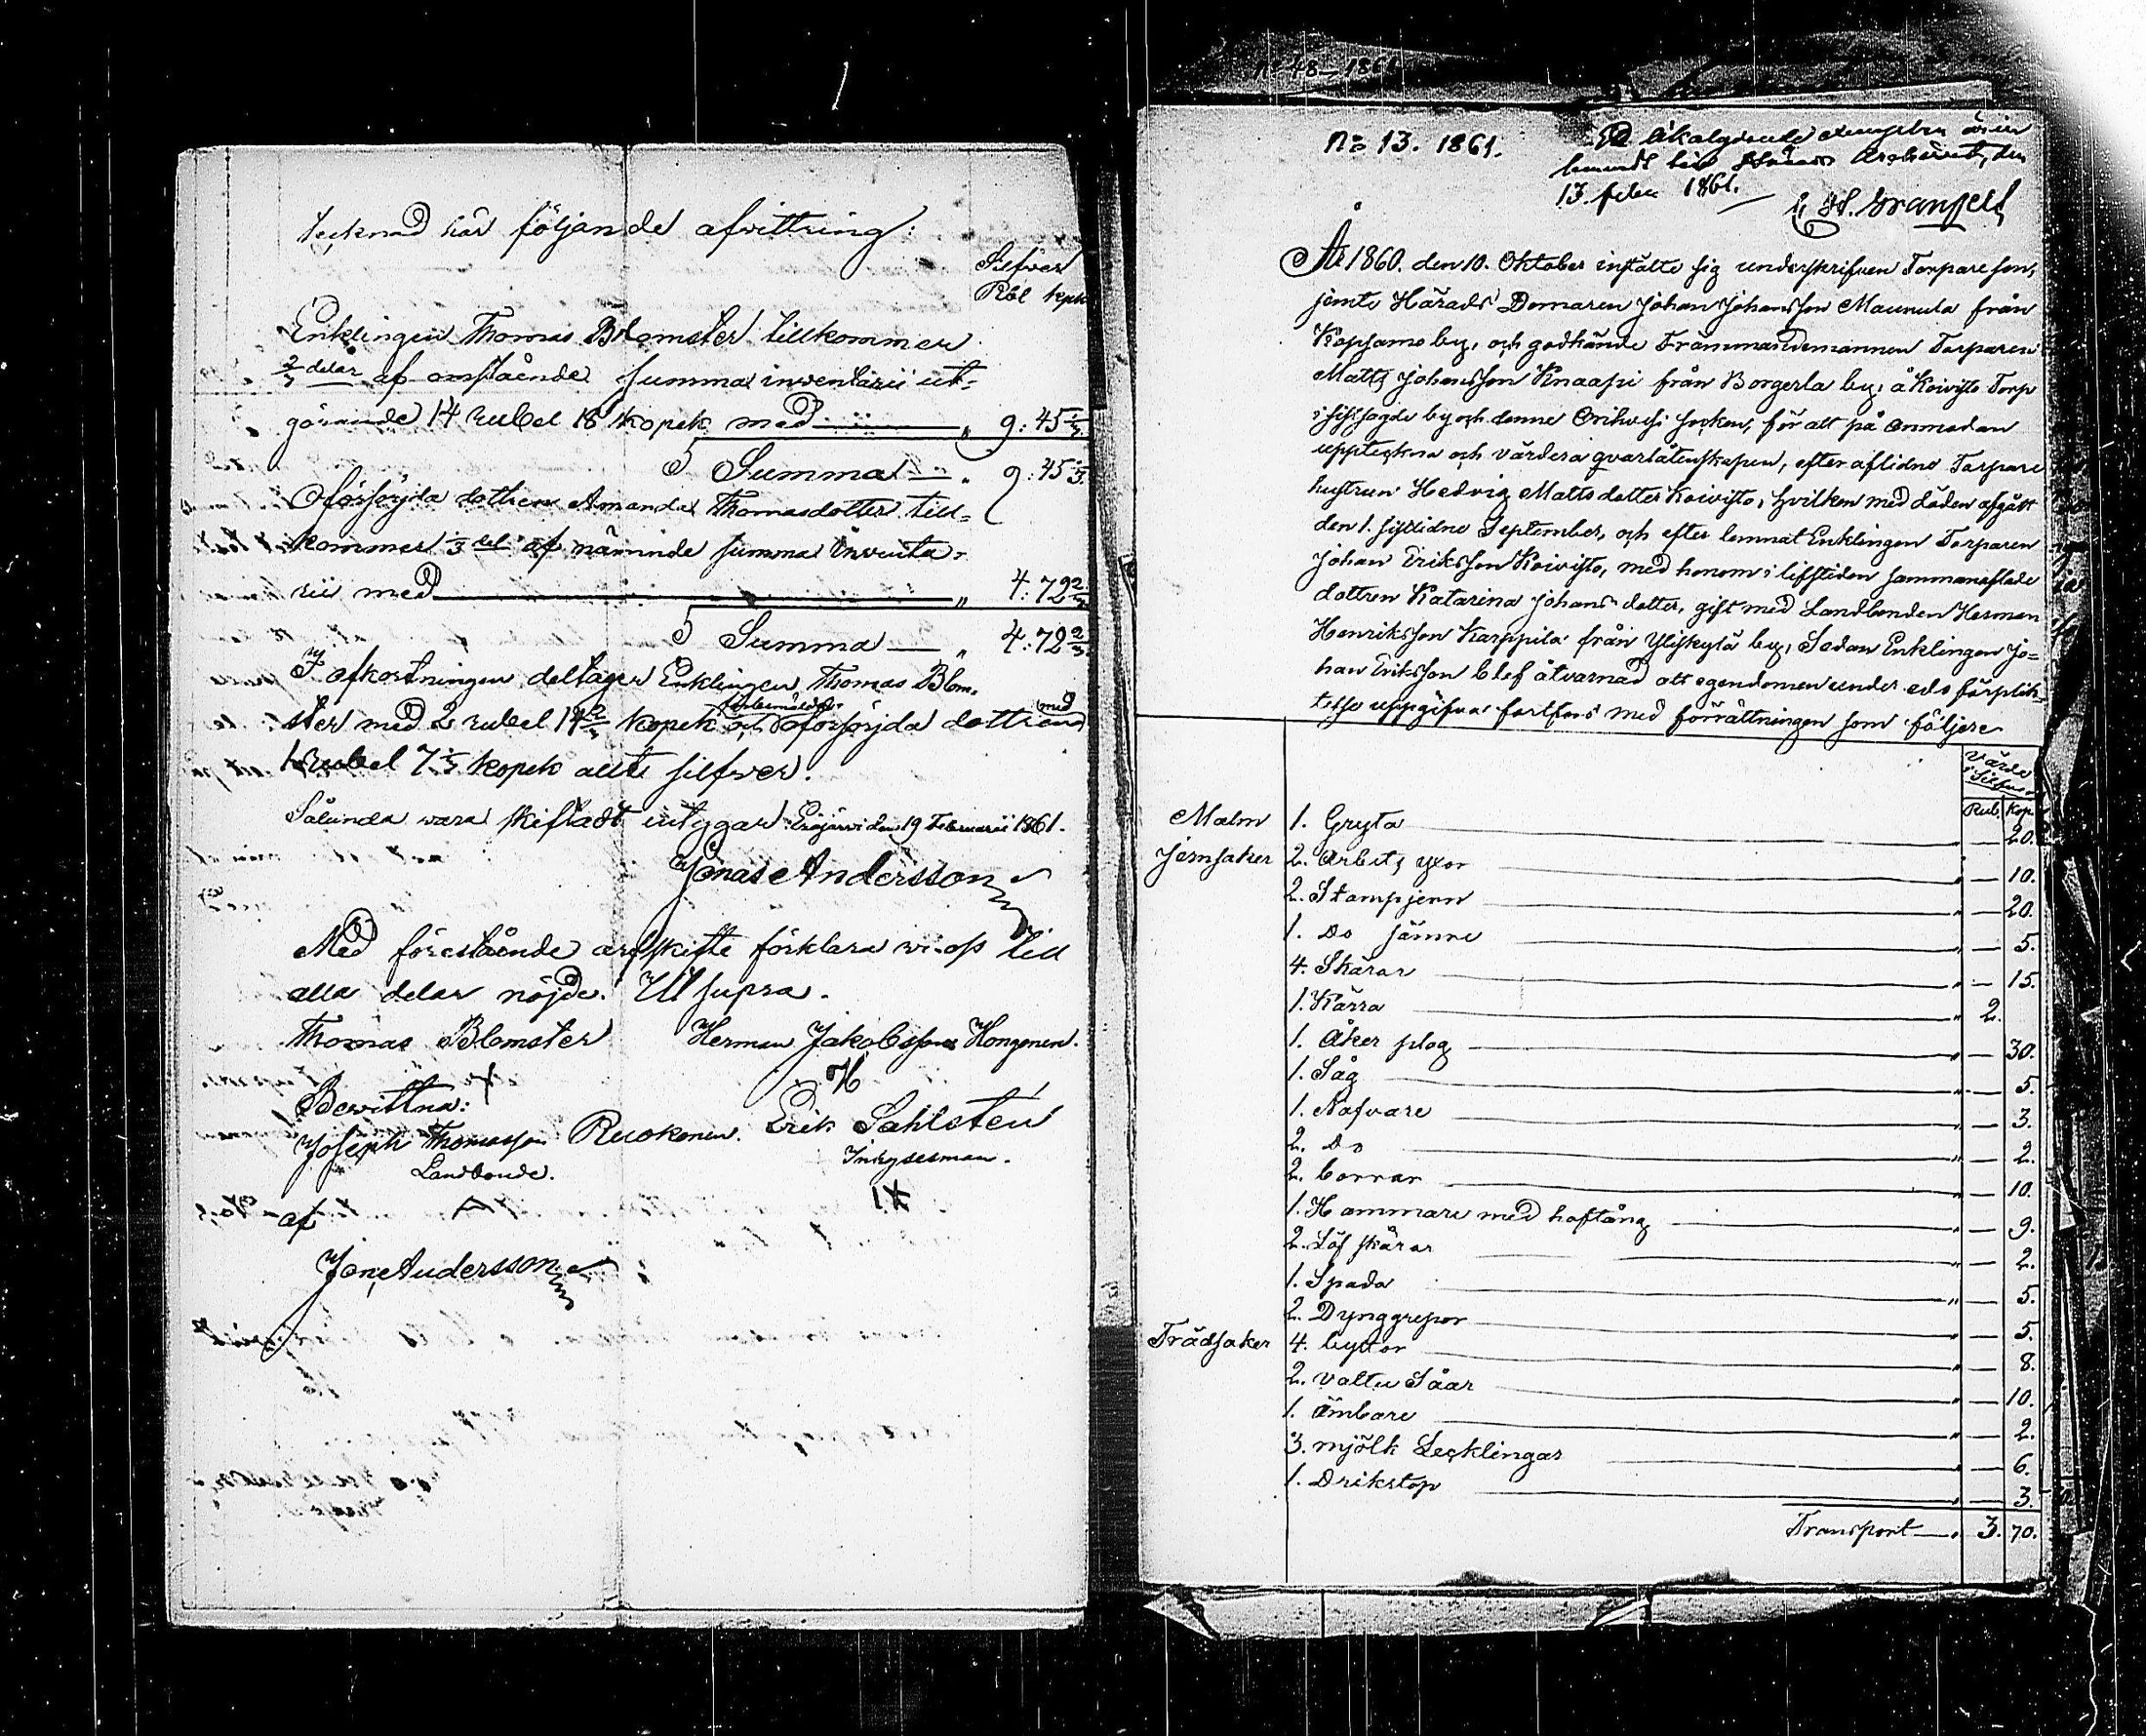 tecknad här följande afvittring:
Silfver
Rbl kpk
Enklingen Thomas Blomster tillkommer
2/3 delar af omstående summa inventarii ut-
görande 14 rubel 18 kopek med " 9: 45 1/3
Summa " 9: 45 1/3
Oförsörjda dottren Amanda Thomasdotter till-
kommer 1/3 del af nämnde summa inventa-
rii med " 4: 72 2/3
Summa " 4: 72 2/3
I afkortningen deltager Enklingen Thomas Blom-
ster med 2 rubel 14 2/3 kopek och oförsörjda dottren med
1 rubel 7 1/3 kopek allt silfwer.
Sålunda vara skiftadt intygar: Eräjärwi den 19 Februarii 1861.
Jonas Andersson
Med förestående arfskifte förklara vi oss till
alla delar nöjde. Ut supra.
Thomas Blomster Herman Jakobsson Hongonen.
Bewittna:
Joseph Thomasson Ruokonen. Erik Sahlstén
Landbonde. Inhysesman.
af
Jonas Andersson
No 48–1861
No 13. 1861.
likalydande exemplar är in
lemnadt till Härads Archivet, den
13 febr 1861.
År 1860. den 10. Oktober instälte sig underskrifven Torpareson,
jemte Härads Domaren Johan Johansson Maunula från
Köpsamo by, och godkände Främmandemannen Torparen
Matts Johansson Knaapi från Borgerla by, å Koivisto Torp
i sistsagde by och denne Orihvesi socken, för att på anmodan
uppteckna och värdera qvarlåtenskapen, efter aflidne Torpare
hustrun Hedvig Mattsdotter Koivisto, hvilken med döden afgått
den 1. sistlidne September, och efter lemnat Enklingen Torparen
Johan Eriksson Koivisto, med honom i lifstiden sammanaflade
dottren Katarina Johansdotter, gift med Landbonden Herman
Henriksson Karppila från Yliskylä by, Sedan Enklingen Jo-
han Eriksson blef åtvarnad att egendomen under eds förplik-
telse uppgifva fortfors med förrättningen som följer
Värde
i Silfver
Rub. Kop.
Malm 1. Gryta " — 20.
Jernsaker 2. Arbets yxor " — 10.
2. Stampjern " — 20.
1. Do sämre " — 5.
4. Skäror " — 15.
1. Kärra " 2.
1. Åker plog " — 30.
1. Såg " — 5.
1. Nafvare " — 3.
2. Do " — 2.
2. borrar " — 10.
1. Hammare med hoftång " — 9.
2. Löf skäror " — 2.
1. Spada " — 5.
2. Dynggrepor " — 5.
Trädsaker 4. byttor " — 8.
2. valtu Såar " — 10.
1. ämbare " — 2.
3. mjölk Lecklingar " — 6.
1. Drikstop " — 3.
Transport " 3. 70.